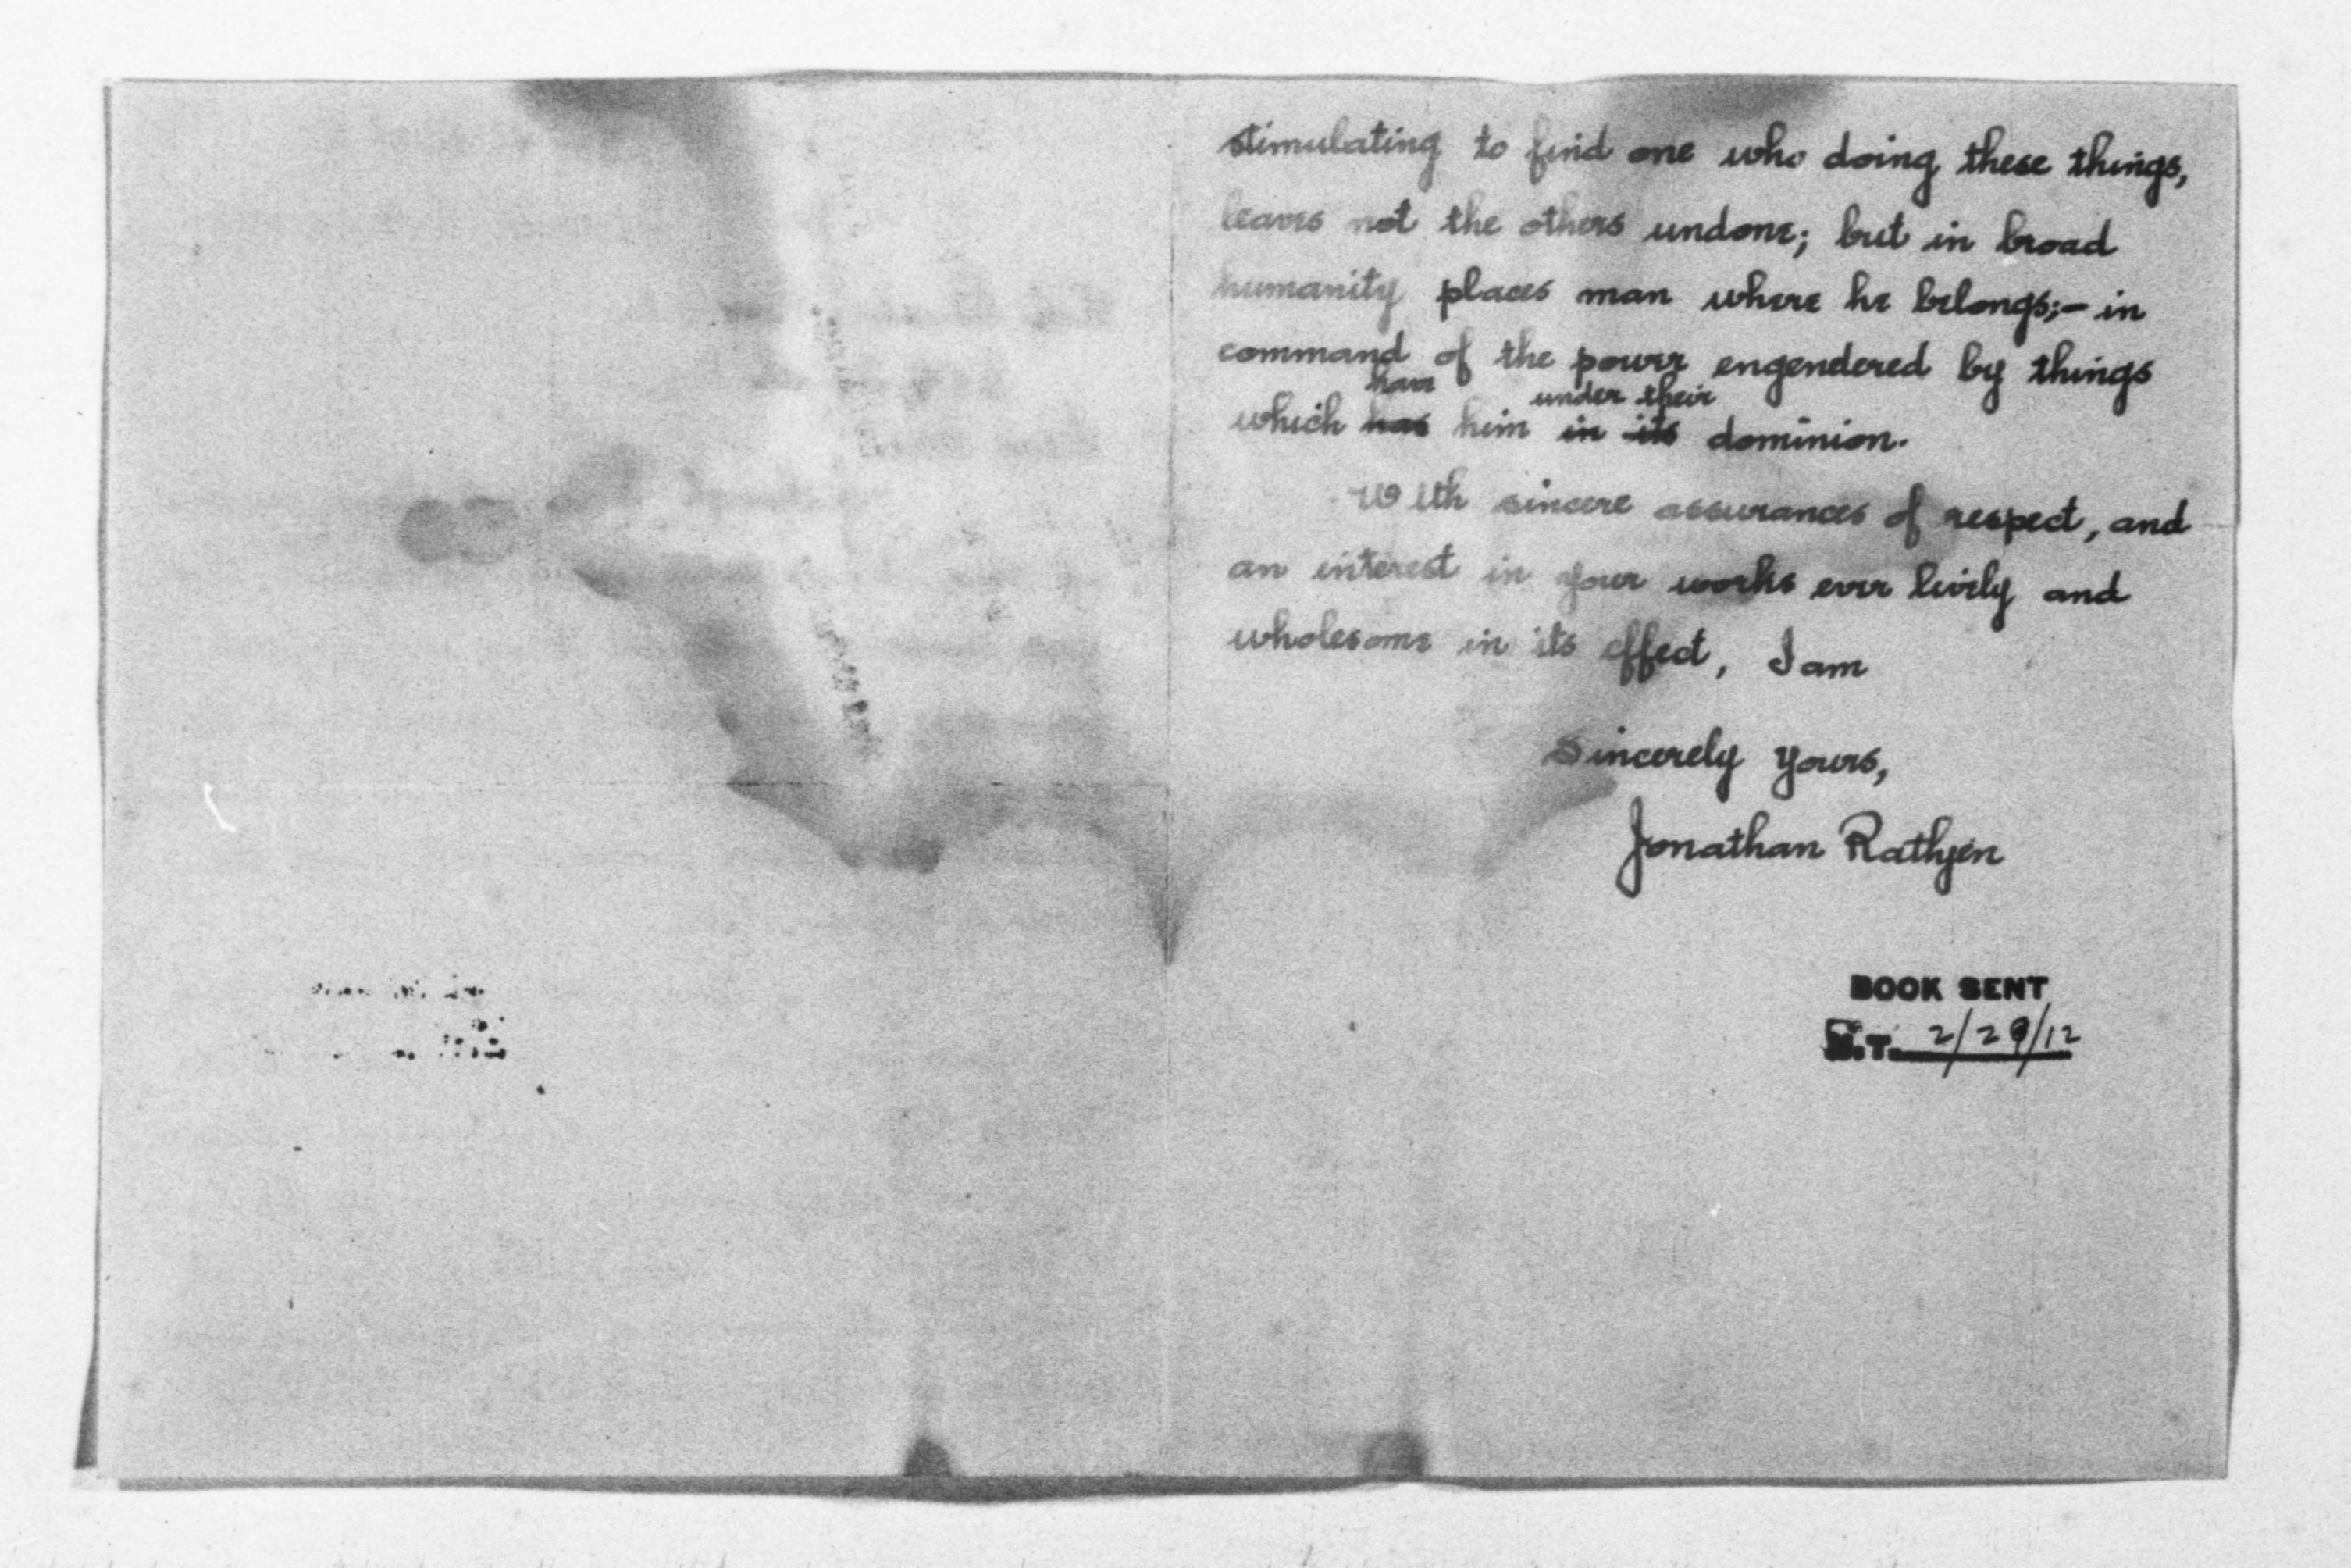 stimulating to find one who doing these things,
leaves not the others undone; but in broad
humanity places man where he belongs;- in
command of the power engendered by things
have under their
which has him in its dominion.
With sincere assurances of respect, and
an interest in your works ever lively and
wholesome in its effect, I am
Sincerely Yours,
Jonathan Rathjen
BOOK SENT
2/29/12